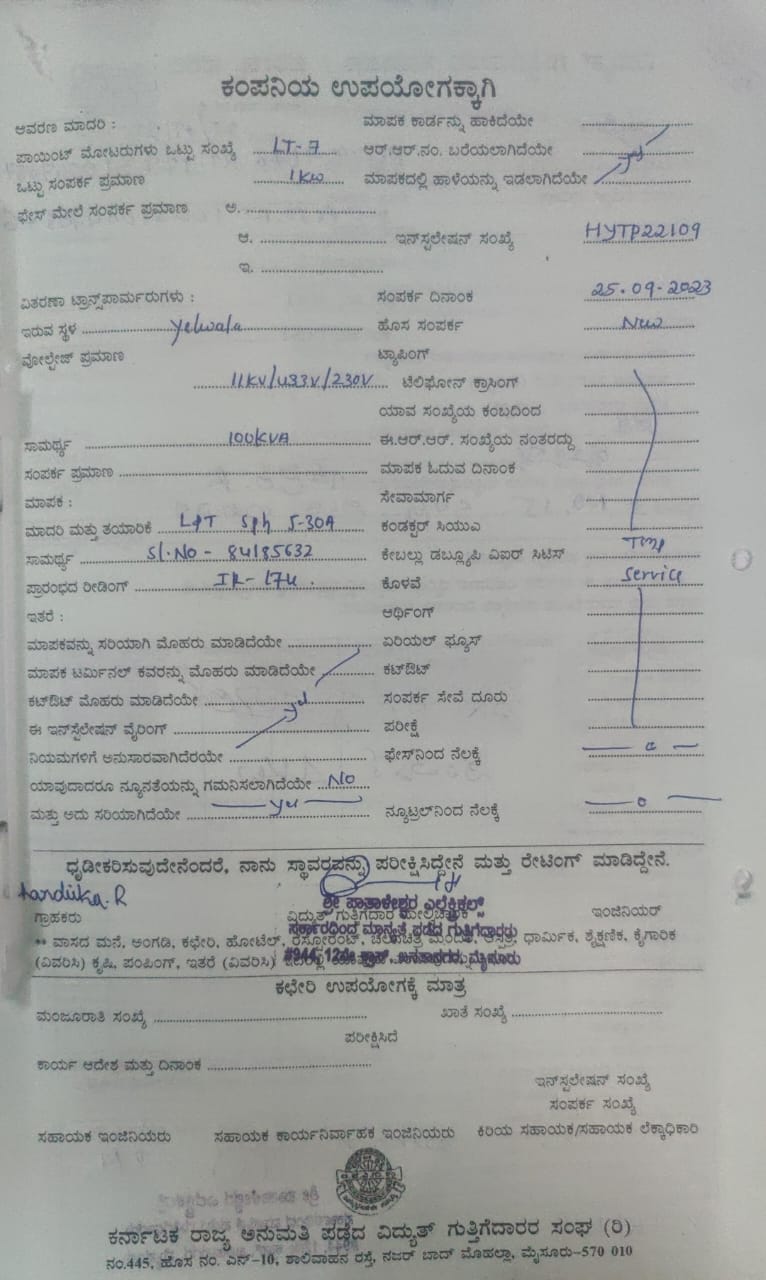 ಕಂಪನಿಯ ಉಪಯೋಗಕ್ಕಾಗಿ
ಆವರಣ ಮಾದರಿ : ಮಾಪಕ ಕಾರ್ಡನ್ನು ಹಾಕಿದೆಯೇ
ಪಾಯಿಂಟ್ ಮೋಟರುಗಳು ಒಟ್ಟು ಸಂಖ್ಯೆ LT-7 ಆರ್.ಆರ್.ನಂ. ಬರೆಯಲಾಗಿದೆಯೇ yes
ಒಟ್ಟು ಸಂಪರ್ಕ ಪ್ರಮಾಣ 1KW ಮಾಪಕದಲ್ಲಿ ಹಾಳೆಯನ್ನು ಇಡಲಾಗಿದೆಯೇ
ಫೇಸ್ ಮೇಲೆ ಸಂಪರ್ಕ ಪ್ರಮಾಣ ಅ.
ಆ. ಇನ್‌ಸ್ಟಲೇಷನ್ ಸಂಖ್ಯೆ HYTP22109
ಇ.
ವಿತರಣಾ ಟ್ರಾನ್ಸ್‌ಪಾರ್ಮರುಗಳು : ಸಂಪರ್ಕ ದಿನಾಂಕ 25.09.2023
ಇರುವ ಸ್ಥಳ Yelwala ಹೊಸ ಸಂಪರ್ಕ New
ವೋಲ್ಟೇಜ್ ಪ್ರಮಾಣ ಟ್ಯಾಪಿಂಗ್
11KV/433V/230V ಟೆಲಿಫೋನ್ ಕ್ರಾಸಿಂಗ್
ಯಾವ ಸಂಖ್ಯೆಯ ಕಂಬದಿಂದ
ಸಾಮರ್ಥ್ಯ 100KVA ಈ.ಆರ್.ಆರ್. ಸಂಖ್ಯೆಯ ನಂತರದ್ದು
ಸಂಪರ್ಕ ಪ್ರಮಾಣ ಮಾಪಕ ಓದುವ ದಿನಾಂಕ
ಮಾಪಕ : ಸೇವಾಮಾರ್ಗ
ಮಾದರಿ ಮತ್ತು ತಯಾರಿಕೆ L&T Sph 5-30A ಕಂಡಕ್ಟರ್ ಸಿಯುಎ
ಸಾಮರ್ಥ್ಯ Sl.No - 84185632 ಕೇಬಲ್ಲು ಡಬ್ಲ್ಯೂಪಿ ವಿಐರ್ ಸಿಟಿಸ್ Tmp
ಪ್ರಾರಂಭದ ರೀಡಿಂಗ್ IR-174. ಕೊಳವೆ Service
ಇತರೆ : ಅರ್ಥಿಂಗ್
ಮಾಪಕವನ್ನು ಸರಿಯಾಗಿ ಮೊಹರು ಮಾಡಿದೆಯೇ ಏರಿಯಲ್ ಫ್ಯೂಸ್
ಮಾಪಕ ಟರ್ಮಿನಲ್ ಕವರನ್ನು ಮೊಹರು ಮಾಡಿದೆಯೇ ಕಟ್‌ಔಟ್
ಕಟ್‌ಔಟ್ ಮೊಹರು ಮಾಡಿದೆಯೇ yes ಸಂಪರ್ಕ ಸೇವೆ ದೂರು
ಈ ಇನ್‌ಸ್ಟೆಲೇಷನ್ ವೈರಿಂಗ್ ಪರೀಕ್ಷೆ
ನಿಯಮಗಳಿಗೆ ಅನುಸಾರವಾಗಿದೆರಯೇ ಫೇಸ್‌ನಿಂದ ನೆಲಕ್ಕೆ
ಯಾವುದಾದರೂ ನ್ಯೂನತೆಯನ್ನು ಗಮನಿಸಲಾಗಿದೆಯೇ No
ಮತ್ತು ಅದು ಸರಿಯಾಗಿದೆಯೇ yes ನ್ಯೂಟ್ರಲ್‌ನಿಂದ ನೆಲಕ್ಕೆ
ಧೃಡೀಕರಿಸುವುದೇನೆಂದರೆ, ನಾನು ಸ್ಥಾವರವನ್ನು ಪರೀಕ್ಷಿಸಿದ್ದೇನೆ ಮತ್ತು ರೇಟಿಂಗ್ ಮಾಡಿದ್ದೇನೆ.
ಶ್ರೀ ಪಾತಾಳೇಶ್ವರ ಎಲೆಕ್ಟ್ರಿಕಲ್ಸ್
ಗ್ರಾಹಕರು ವಿದ್ಯುತ್ ಗುತ್ತಿಗೆದಾರ ಮೇಲ್ವಿಚಾರಕ ಇಂಜಿನಿಯರ್
ಸರ್ಕಾರದಿಂದ ಮಾನ್ಯತೆ ಪಡೆದ ಗುತ್ತಿಗೆದಾರರು
** ವಾಸದ ಮನೆ, ಅಂಗಡಿ, ಕಛೇರಿ, ಹೋಟೆಲ್, ರೆಸ್ಟೋರಂಟ್, ಚಲನಚಿತ್ರ ಮಂದಿರ, ಆಸ್ಪತ್ರೆ, ಧಾರ್ಮಿಕ, ಶೈಕ್ಷಣಿಕ, ಕೈಗಾರಿಕ
(ವಿವರಿಸಿ) ಕೃಷಿ, ಪಂಪಿಂಗ್, ಇತರೆ (ವಿವರಿಸಿ)
ಕಛೇರಿ ಉಪಯೋಗಕ್ಕೆ ಮಾತ್ರ
ಮಂಜೂರಾತಿ ಸಂಖ್ಯೆ ಖಾತೆ ಸಂಖ್ಯೆ
ಪರೀಕ್ಷಿಸಿದೆ
ಕಾರ್ಯ ಆದೇಶ ಮತ್ತು ದಿನಾಂಕ
ಇನ್‌ಸ್ಪಲೇಷನ್ ಸಂಖ್ಯೆ
ಸಂಪರ್ಕ ಸಂಖ್ಯೆ
ಸಹಾಯಕ ಇಂಜಿನಿಯರು ಸಹಾಯಕ ಕಾರ್ಯನಿರ್ವಾಹಕ ಇಂಜಿನಿಯರು ಕಿರಿಯ ಸಹಾಯಕ/ಸಹಾಯಕ ಲೆಕ್ಕಾಧಿಕಾರಿ
ಕರ್ನಾಟಕ ರಾಜ್ಯ ಅನುಮತಿ ಪಡೆದ ವಿದ್ಯುತ್ ಗುತ್ತಿಗೆದಾರರ ಸಂಘ (ರಿ)
ನಂ.445, ಹೊಸ ನಂ. ಎನ್-10, ಶಾಲಿವಾಹನ ರಸ್ತೆ, ನಜರ್ ಬಾದ್ ಮೊಹಲ್ಲಾ, ಮೈಸೂರು-570 010